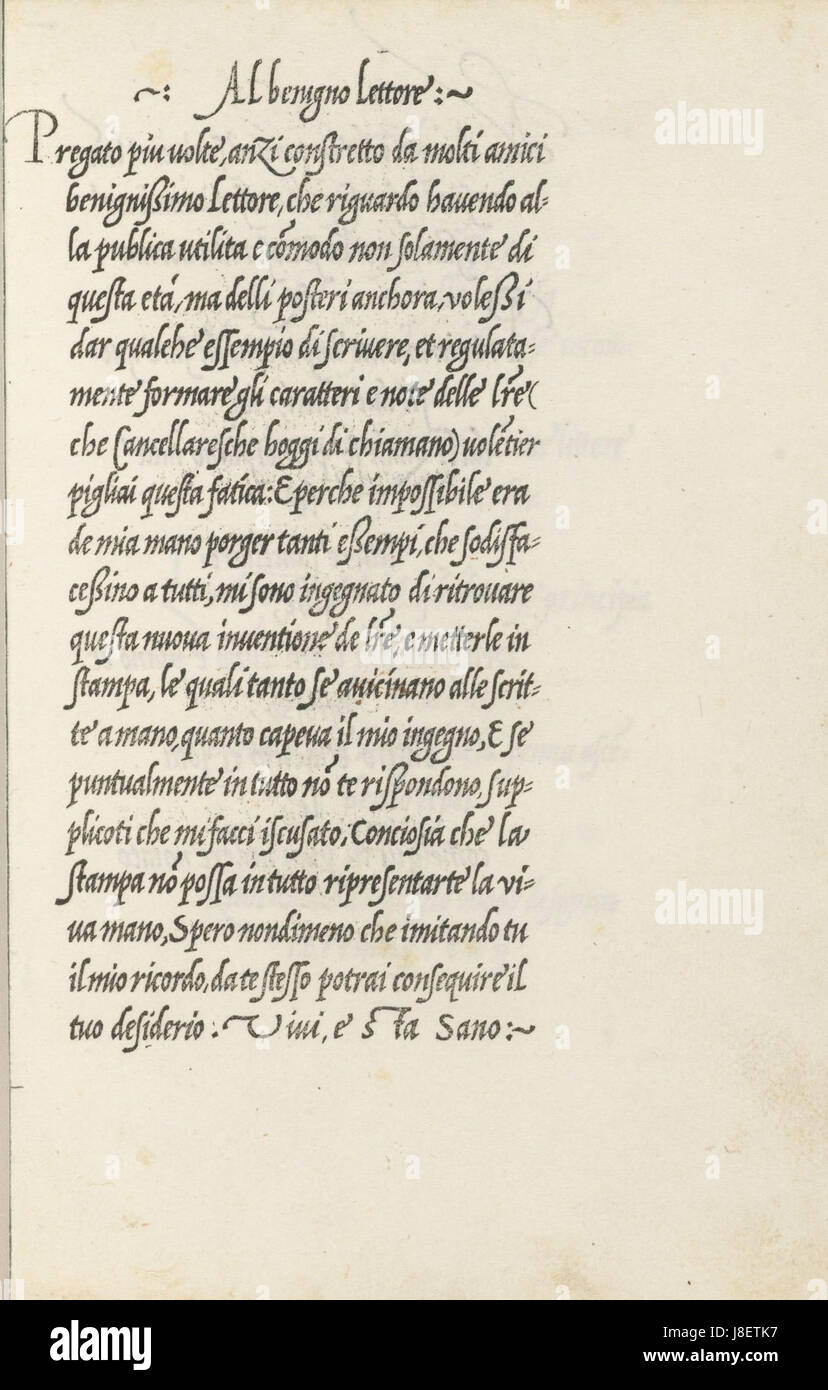 ~: Al benigno lettore :~
Pregato piu uolte, anzi constretto da molti amici
benignißimo Lettore, che riguardo hauendo al-
la publica utilita e cõmodo non solamente di
questa età, ma delli posteri anchora, voleßi
dar qualche essempio di scrivere, et regulata-
mente formare gli caratteri e note delle lr̃e (
che Cancellaresche hoggi di chiamano) uolẽtier
pigliai questa fatica: E perche impossibile era
de mia mano porger tanti eßempi, che sodisfa-
ceßino a tutti, mi sono ingegnato di ritrouare
questa nuoua inuentione de lr̃e, e metterle in
stampa, le quali tanto se auicinano alle scrit-
te a mano, quanto capeua il mio ingegno, E se
puntualmente in tutto nõ te rispondono, sup-
plicoti che mi facci iscusato, Conciosia che la
stampa nõ possa in tutto ripresentarte la vi-
ua mano, Spero nondimeno che imitando tu
il mio ricordo, da te stesso potrai consequire il
tuo desiderio: Viui, e Sta Sano:~
alamy
Image ID: J8ETK7
www.alamy.com